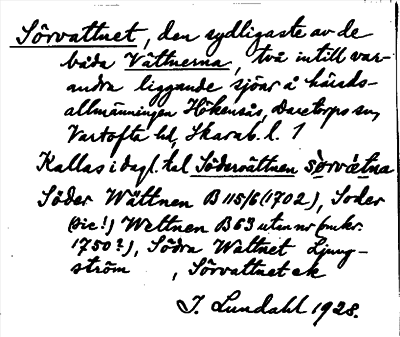 Sörvattnet, den sydligaste av de
båda Vättnerna, två intill var-
andra liggande sjöar å härads-
allmänningen Hökensås, Daretorps sn,
Vartofta hd, Skarab. l. 1
Kallas i dagl. tal Södervättnen
Söder Wättnen B 115/6 (1702), Soder
(sic!) Wettnen B 63 utan nr (omkr.
1750?), Södra Wattnet Ljung-
ström , Sörvattnet ek
J. Lundahl 1928.